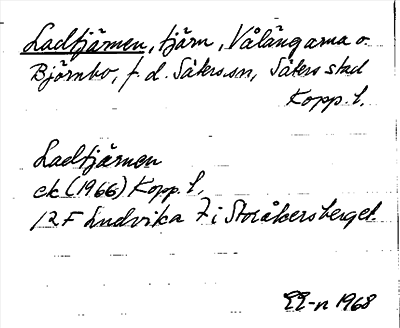 Ladtjärnen, tjärn, Vålängarna o.
Björnbo, f. d. Säters sn, Säters stad
Kopp. l.
Ladtjärnen
ek (1966) Kopp. l.
12 F Ludvika 7 i Storåkersberget
EE-n 1968